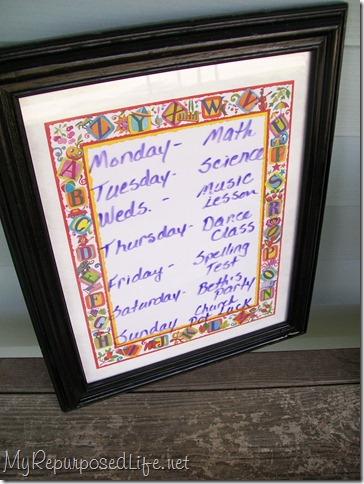 Monday - Math
Tuesday - Science
Weds. - Music
Lesson
Thursday - Dance
Class
Friday - Spelling
Test
Saturday - Beth's
Party
Sunday Church
Pot Luck
MyRepurposedLife.net